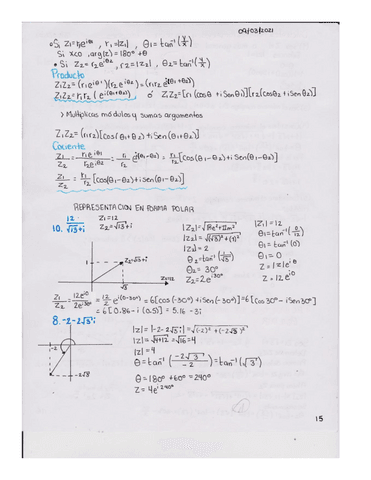 09/03/2021
• Si Z1=r1e^iθ1, r1=|Z1|, θ1=tan⁻¹(y/x)
Si x<0, arg(z)=180°+θ
• Si Z2=r2e^iθ2, r2=|Z2|, θ2=tan⁻¹(y/x)
Producto
Z1Z2=(r1e^iθ1)(r2e^iθ2)=(r1r2e^i(θ1+θ2))
Z1Z2=r1r2(e^i(θ1+θ2)) ó Z1Z2=[r1(cosθ1+iSenθ1)][r2(cosθ2+iSenθ2)]
> Multiplicas módulos y sumas argumentos
Z1Z2=(r1r2)[cos(θ1+θ2)+iSen(θ1+θ2)]
Cociente
Z1/Z2=r1e^iθ1/r2e^iθ2=r1/r2 e^i(θ1-θ2)=r1/r2[cos(θ1-θ2)+iSen(θ1-θ2)]
Z1/Z2=r1/r2[cos(θ1-θ2)+isen(θ1-θ2)]
REPRESENTACION EN FORMA POLAR
10. 12/√3+i
Z1=12
Z2=√3+i
1
Z2=√3+i
√3
Z1=12
|Z2|=√Re²+Im²
|Z2|=√(√3)²+(1)²
|Z2|=2
θ2=tan⁻¹(1/√3)
θ2=30°
Z2=2e^i30°
|Z1|=12
θ1=tan⁻¹(0/12)
θ1=tan⁻¹(0)
θ1=0
Z=|z|e^iθ
Z=12e^i0
Z1/Z2=12e^i0/2e^i30°=12/2 e^i(0-30°)=6[cos(-30°)+isen(-30°)]=6[cos30°-isen30°]
=6[0.86-i(0.5)]=5.16-3i
8. -2-2√3 i
-2
-2√3
|z|=|-2-2√3 i|=√(-2)²+(-2√3)²
|z|=√4+12=√16=4
|z|=4
θ=tan⁻¹(-2√3/-2)=tan⁻¹(√3)
θ=180°+60°=240°
Z=4e^i240°
15